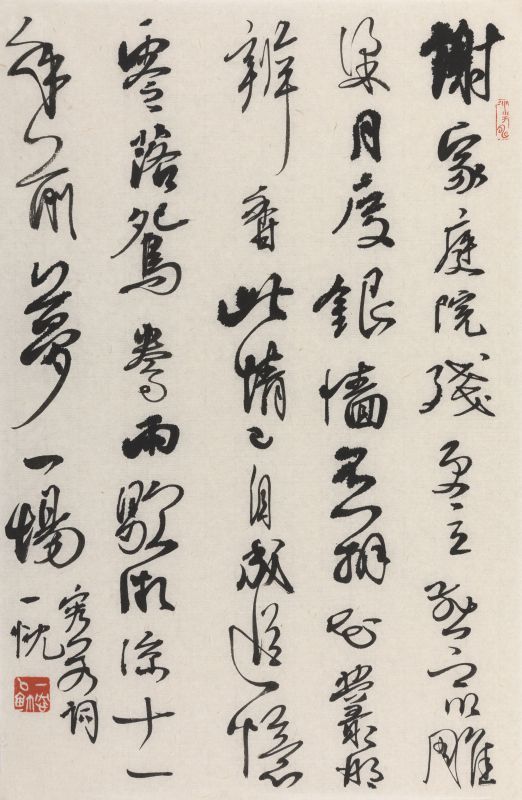 謝家庭院殘更立燕宿雕
梁月度銀墻不辨花叢那
辨香此情已自成追憶
零落鴛鴦雨歇微涼十一
年前夢一場
容若詞
一忱